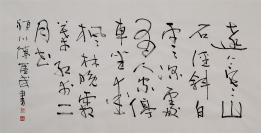 遠上寒山
石徑斜白
雲深處
有人家停
車坐愛
楓林晚霜
葉紅於二
月花
書